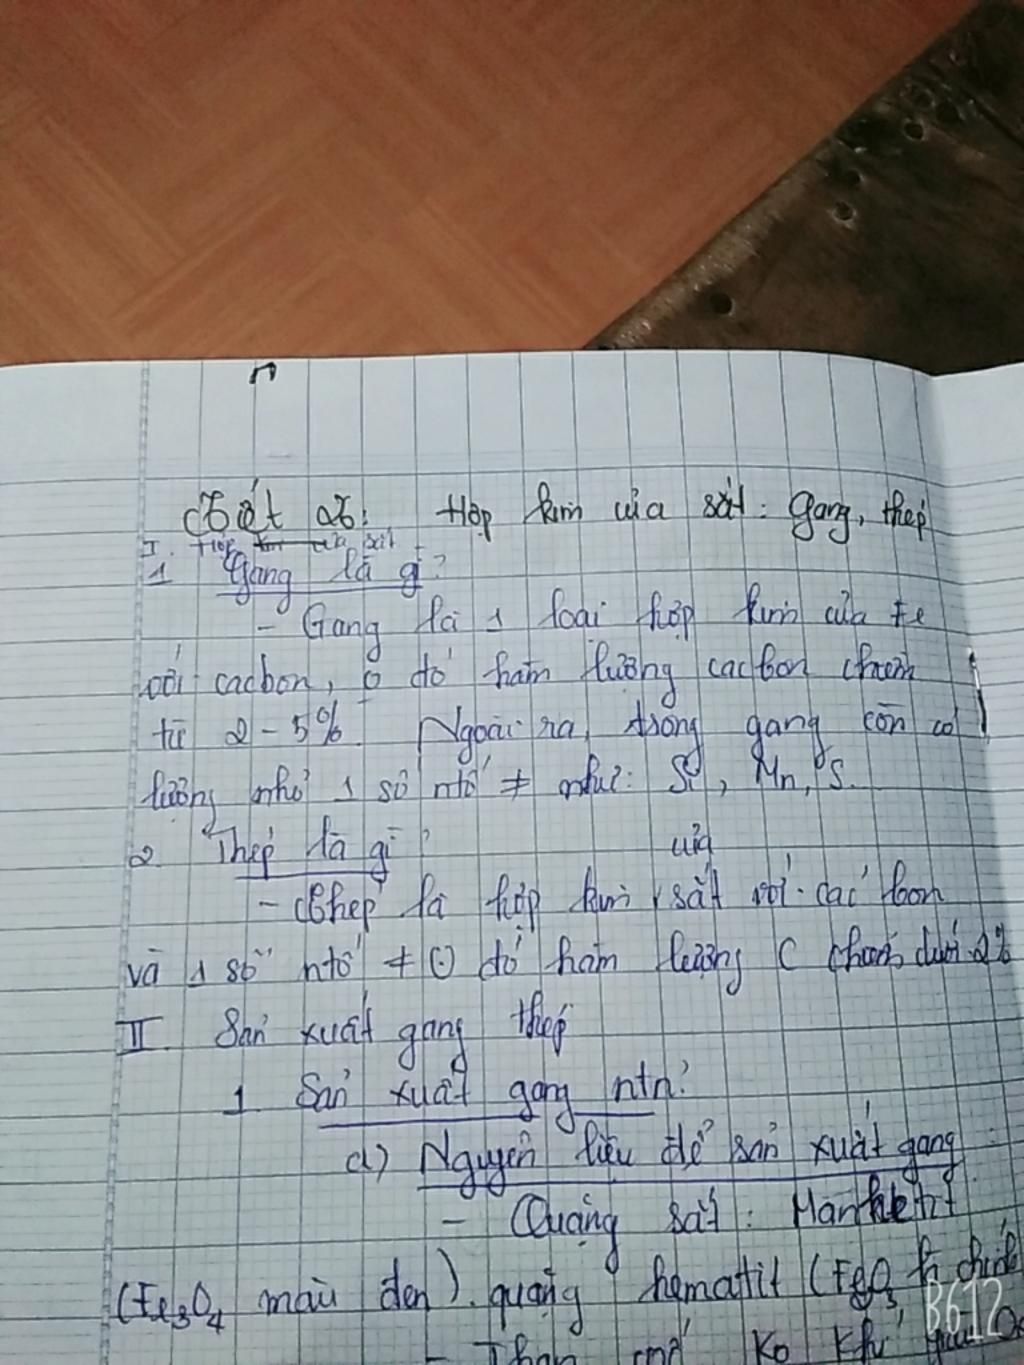 Tiết 26: Hợp kim của sắt: Gang, thép
I. Hợp kim của sắt
1 Gang là gì?
- Gang là 1 loại hợp kim của Fe
với cacbon, ở đó hàm lượng cacbon chiếm
từ 2-5%. Ngoài ra, trong gang còn có
lượng nhỏ 1 số ntố ≠ như: Si, Mn, S.
2. Thép là gì?
- Thép là hợp kim của sắt với các bon
và 1 số ntố ≠ (.) đó hàm lượng C chiếm dưới 2%
II. Sản xuất gang thép
1 Sản xuất gang ntn?
a) Nguyên liệu để sản xuất gang
- Quặng sắt: Manhetit
(Fe3O4 màu đen). quặng hematit (Fe2O3
- Than Ko khí
B612